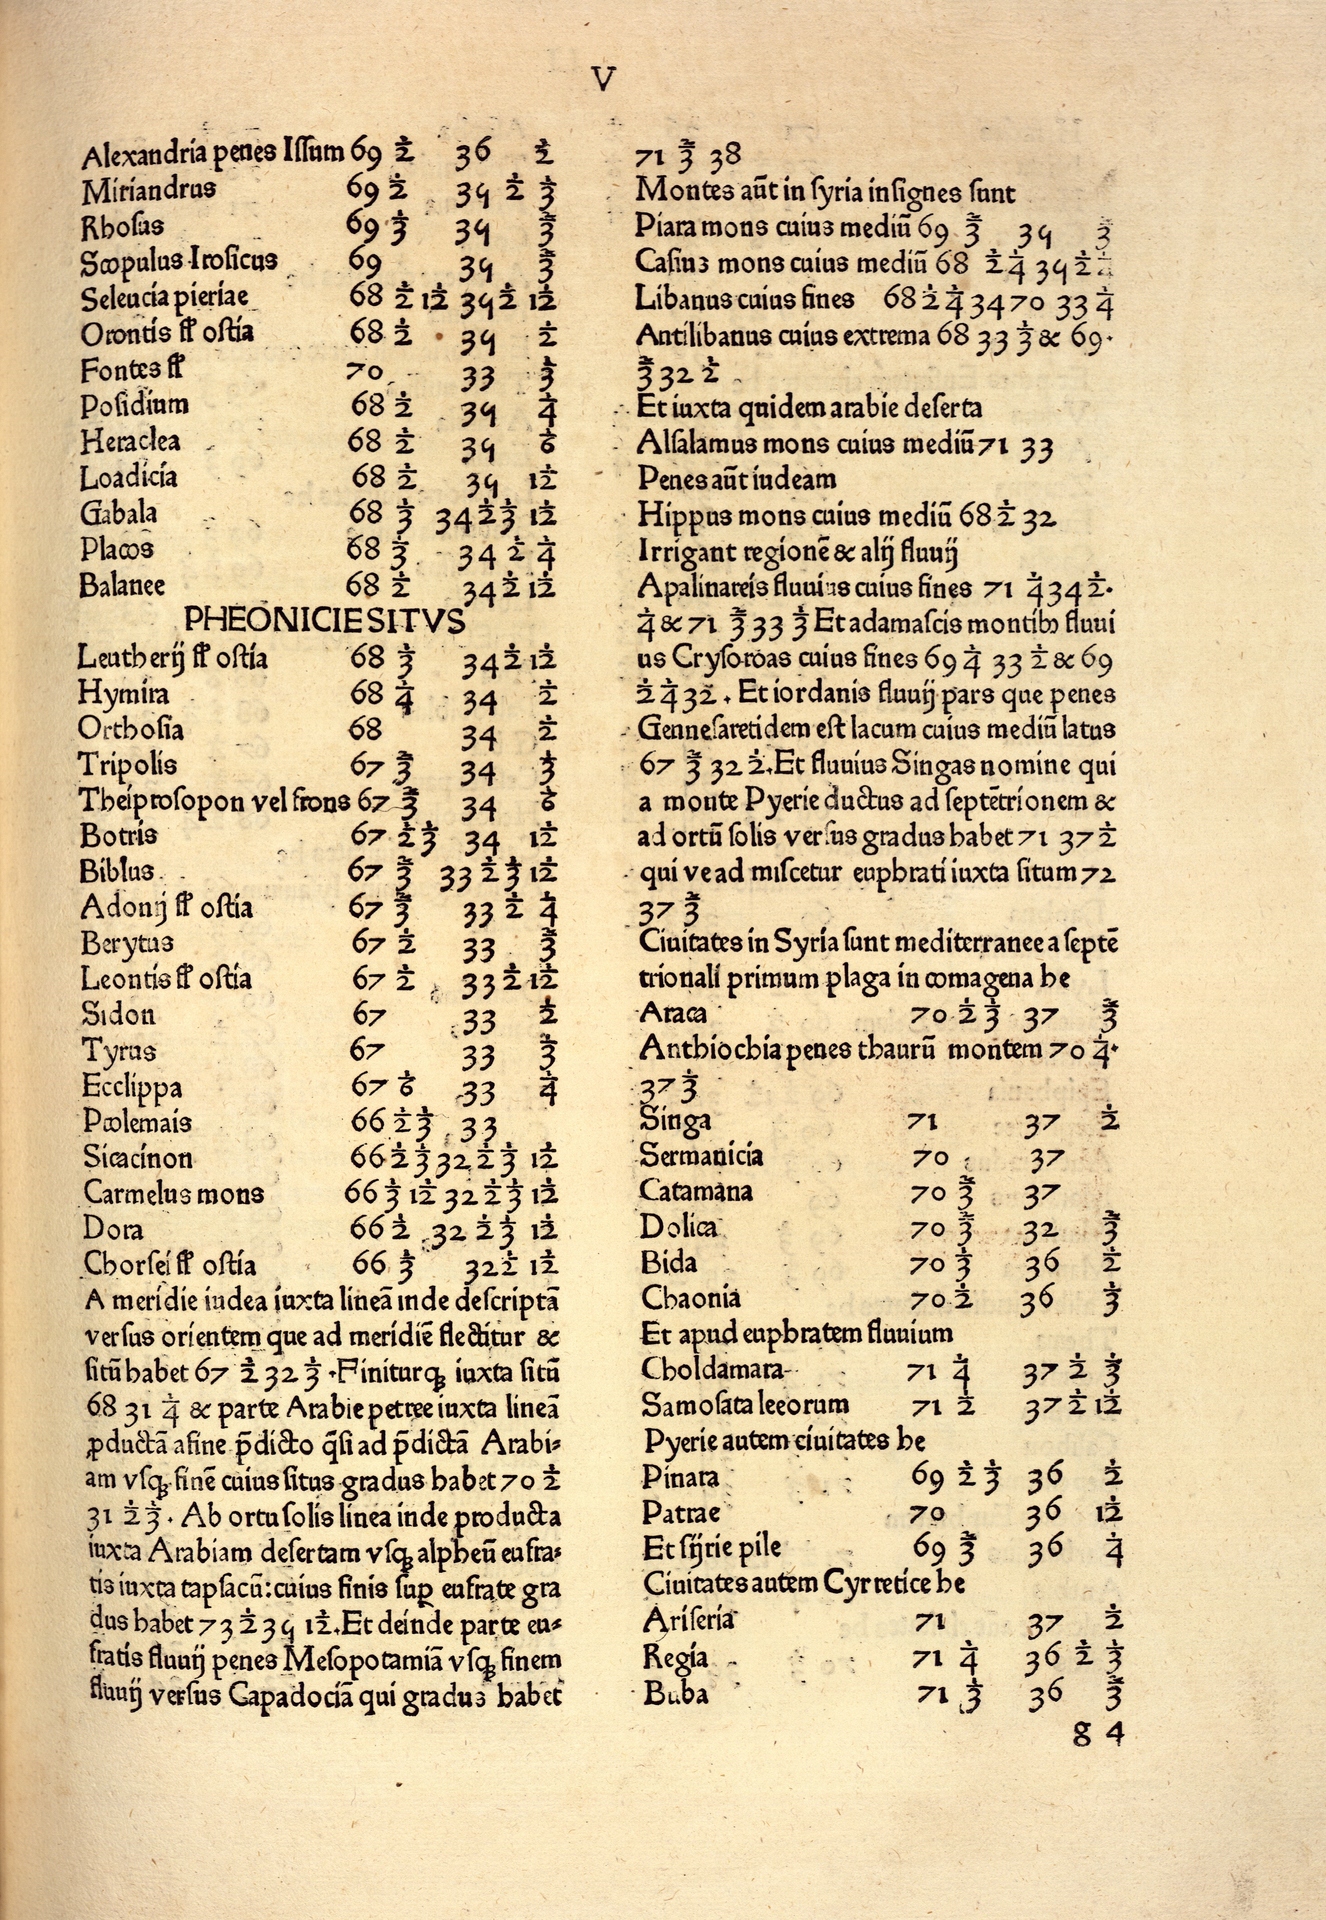 V
Alexandria penes Iſſum 69 ½ 36 ½
Miriandrus 69 ½ 39 ½ ⅓
Rhoſus 69 ⅓ 39 ⅔
Scopulus Iroſicus 69 39 ⅔
Seleucia pieriae 68 ½ 1/12 39 ½ 1/12
Orontis fł oſtia 68 ½ 39 ½
Fontes fł 70 33 ⅓
Poſidium 68 ½ 39 ¼
Heraclea 68 ½ 39 ⅙
Loadicia 68 ½ 39 1/12
Gabala 68 ⅓ 34 ½ ⅓ 1/12
Placos 68 ⅓ 34 ½ ¼
Balanee 68 ½ 34 ½ 1/12
PHEONICIE SITVS
Leutherij fł oſtia 68 ⅓ 34 ½ 1/12
Hymira 68 ¼ 34 ½
Orthoſia 68 34 ½
Tripolis 67 ⅔ 34 ⅓
Theiproſopon vel frons 67 ⅔ 34 ⅙
Botris 67 ½ ⅓ 34 1/12
Biblus 67 ⅔ 33 ½ ⅓ 1/12
Adonij fł oſtia 67 ⅔ 33 ½ ¼
Berytus 67 ½ 33 ⅔
Leontis fł oſtia 67 ½ 33 ½ 1/12
Sidon 67 33 ½
Tyrus 67 33 ⅔
Ecclippa 67 ⅙ 33 ¼
Ptolemais 66 ½ ⅓ 33
Sicacinon 66 ½ ⅓ 32 ½ ⅓ 1/12
Carmelus mons 66 ⅓ 1/12 32 ½ ⅓ 1/12
Dora 66 ½ 32 ½ ⅓ 1/12
Chorſei fł oſtia 66 ⅓ 32 ½ 1/12
A meridie iudea iuxta lineā inde deſcriptā
verſus orientem que ad meridiē flectitur &
ſitū habet 67 ½ 32 ⅓ . Finiturqꝫ iuxta ſitū
68 31 ¼ & parte Arabie petree iuxta lineā
ꝓductā a fine p̄dicto q̄ſi ad p̄dictā Arabi⸗
am vſqꝫ finē cuius ſitus gradus habet 70 ½
31 ½ ⅓ . Ab ortu ſolis linea inde producta
iuxta Arabiam deſertam vſqꝫ alpheū eufra⸗
tis iuxta tapſacū: cuius finis ſuꝑ eufrate gra
dus habet 73 ½ 39 1/12. Et deinde parte eu⸗
fratis fluuij penes Meſopotamiā vſqꝫ finem
fluuij verſus Capadociā qui gradus habet
71 ⅔ 38
Montes aūt in ſyria inſignes ſunt
Piara mons cuius mediū 69 ⅔ 39 ⅔
Caſius mons cuius mediū 68 ½ ¼ 39 ½
Libanus cuius fines 68 ½ ¼ 34 70 33 ¼
Antilibanus cuius extrema 68 33 ⅓ & 69.
⅔ 32 ½
Et iuxta quidem arabie deſerta
Alſalamus mons cuius mediū 71 33
Penes aūt iudeam
Hippus mons cuius mediū 68 ½ 32
Irrigant regionē & alij fluuij
Apalinareis fluuius cuius fines 71 ¼ 34 ½.
¼ & 71 ⅔ 33 ⅓ Et adamaſcis montibꝫ fluui
us Cryſoroas cuius fines 69 ¼ 33 ½ & 69
½ ¼ 32 . Et iordanis fluuij pars que penes
Genneſaretidem eſt lacum cuius mediū latus
67 ⅔ 32 ½. Et fluuius Singas nomine qui
a monte Pyerie ductus ad ſeptētrionem &
ad ortū ſolis verſus gradus habet 71 37 ½
qui ve ad miſcetur euphrati iuxta ſitum 72
37 ⅔
Ciuitates in Syria ſunt mediterranee a ſeptē
trionali primum plaga in comagena he
Araca 70 ½ ⅓ 37 ⅔
Anthiochia penes thaurū montem 70 ¼.
37 ⅓
Singa 71 37 ½
Sermanicia 70 37
Catamana 70 ⅔ 37
Dolica 70 ⅔ 32 ⅔
Bida 70 ⅓ 36 ½
Chaonia 70 ½ 36 ⅓
Et apud euphratem fluuium
Choldamara 71 ¼ 37 ½ ⅓
Samoſata leeorum 71 ½ 37 ½ 1/12
Pyerie autem ciuitates he
Pinara 69 ½ ⅓ 36 ½
Patrae 70 36 1/12
Et ſijrie pile 69 ⅔ 36 ¼
Ciuitates autem Cyrretice he
Ariſeria 71 37 ½
Regia 71 ¼ 36 ½ ⅓
Buba 71 ⅓ 36 ⅔
g 4